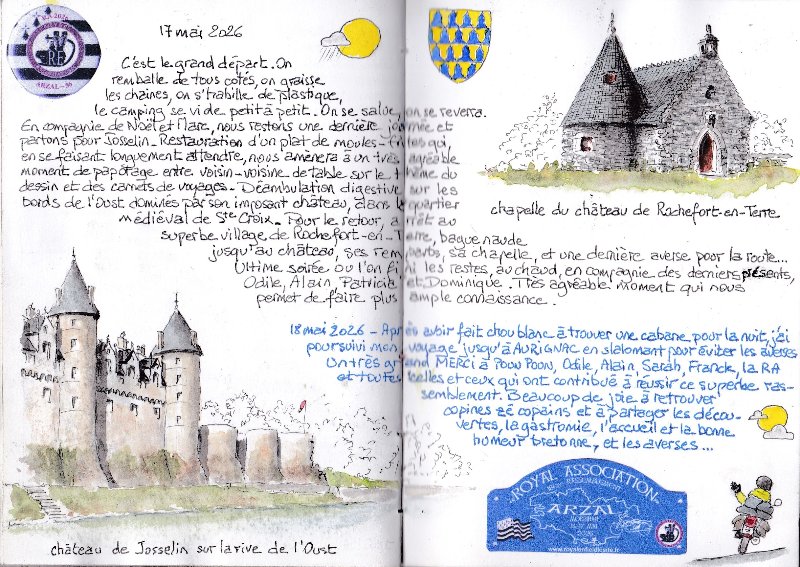 17 mai 2026
C'est le grand départ. On
remballe de tous cotés, on graisse
les chaînes, on s'rabille de plastique,
le camping se vide petit à petit. On se salue, on se reverra.
En compagnie de Noël et Marc, nous restons une dernière journée et
partons pour Josselin. Restauration d'un plat de moules-frites qui,
en se faisant longuement attendre, nous amènera à un très agréable
moment de papotage entre voisin-voisine de table sur le thème du
dessin et des carnets de voyages. Déambulation digestive sur les
bords de l'Oust dominés par son imposant château, dans le quartier
médiéval de Ste Croix. Pour le retour, arrêt au
superbe village de Rochefort-en-Terre, baguenaude
jusqu'au château, ses remparts, sa chapelle, et une dernière averse pour la route...
Ultime soirée où l'on fini les restes, au chaud, en compagnie des derniers présents,
Odile, Alain, Patricia et Dominique. Très agréable moment qui nous
permet de faire plus ample connaissance.
18 mai 2026 - Après avoir fait chou blanc à trouver une cabane pour la nuit, j'ai
poursuivi mon voyage jusqu'à AURIGNAC en slalomant pour éviter les averses
Un très grand MERCI à Pouu Poon, Odile, Alain, Sarah, Franck, la RA
et toutes celles et ceux qui ont contribué à réussir ce superbe ras-
semblement. Beaucoup de joie à retrouver
copines zé copains et à partager les décou-
vertes, la gastromie, l'accueil et la bonne
humeur bretonne, et les averses...
chapelle du château de Rochefort-en-Terre
château de Josselin sur la rive de l'Oust
RA 2026
ARZAL-56
ROYAL ASSOCIATION
ARZAL
MORBIHAN